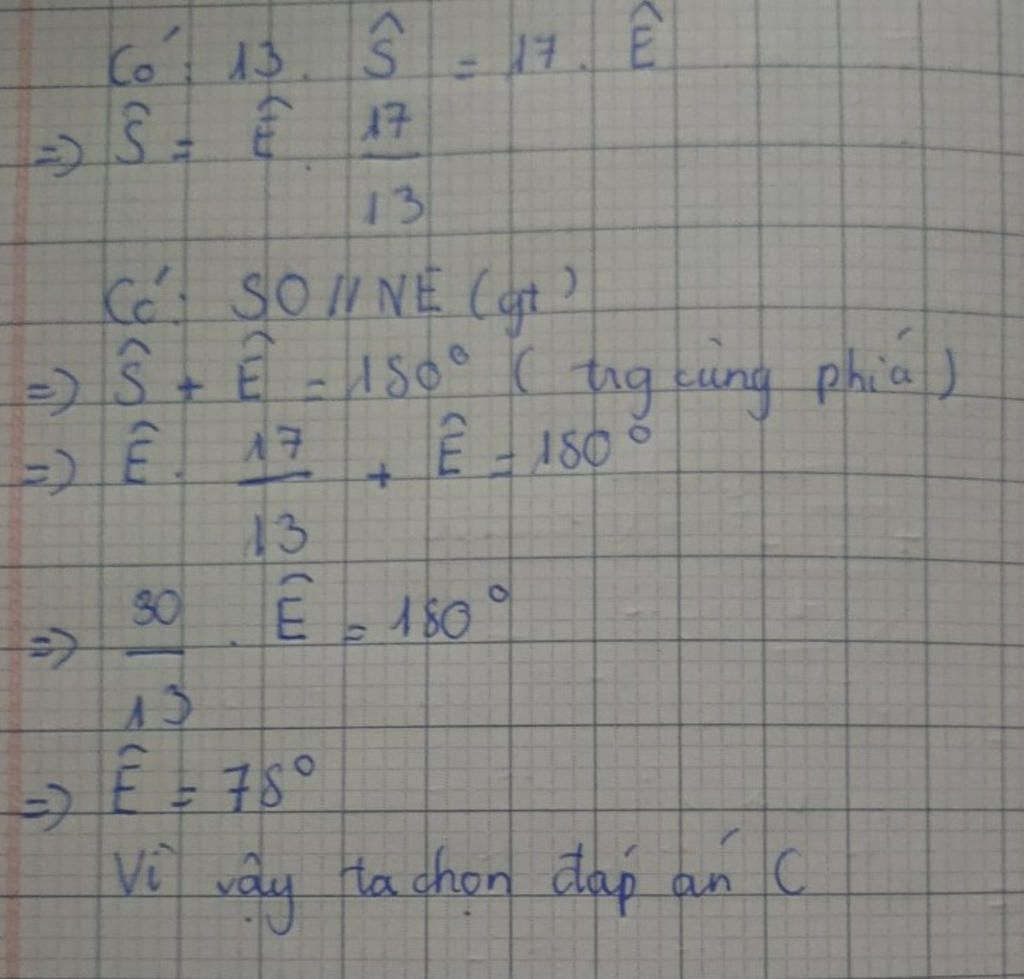 Có: 13. Ŝ = 17. Ê
=> Ŝ = Ê. 17/13
Có: SO // NE (gt)
=> Ŝ + Ê = 180° (trg cùng phía)
=> Ê. 17/13 + Ê = 180°
=> 30/13 . Ê = 180°
=> Ê = 78°
Vì vậy ta chọn đáp án C